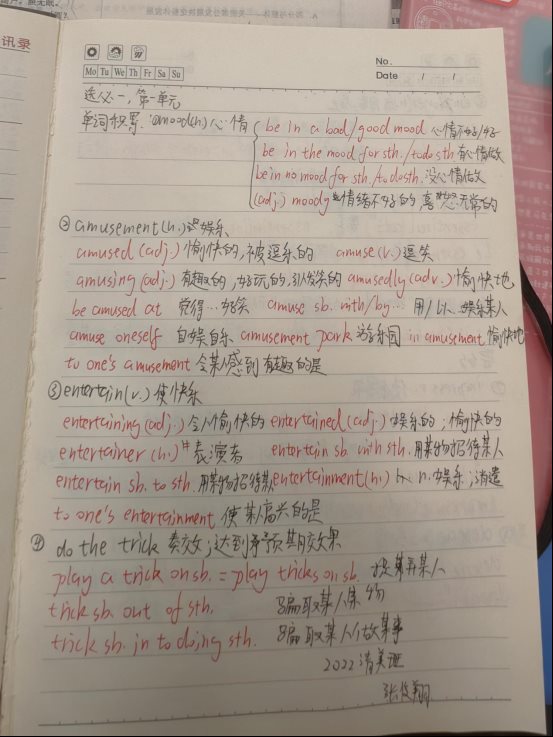 讯录
No.
Mo Tu We Th Fr Sa Su
Date / /
选必一,第一单元
单词积累. ①mood(n.)心情
be in a bad/good mood 心情不好/好
be in the mood for sth./to do sth 有心情做
be in no mood for sth./to do sth. 没心情做
(adj.) moody 情绪不好的 喜怒无常的
② amusement(n.) 娱乐
amused (adj.) 愉快的,被逗乐的 amuse(v.) 逗笑
amusing (adj.) 有趣的,好玩的,引发笑的 amusedly(adv.) 愉快地
be amused at 觉得…好笑 amuse sb. with/by… 用 娱乐某人
amuse oneself 自娱自乐 amusement park 游乐园 in amusement 愉快地
to one's amusement 令某人感到有趣的是
③ entertain(v.) 使快乐
entertaining (adj.) 令人愉快的 entertained (adj.) 娱乐的;愉快的
entertainer (n.) 表演者 entertain sb. with sth. 用某物招待某人
entertain sb. to sth. 用某物招待某 entertainment(n.) n. 娱乐;消遣
to one's entertainment 使某人高兴的是
④ do the trick 奏效;达到预期效果
play a trick on sb. = play tricks on sb. 捉弄某人
trick sb. out of sth. 骗取某人 物
trick sb. in to doing sth. 骗取某人做某事
2022 清美班
张俊翔